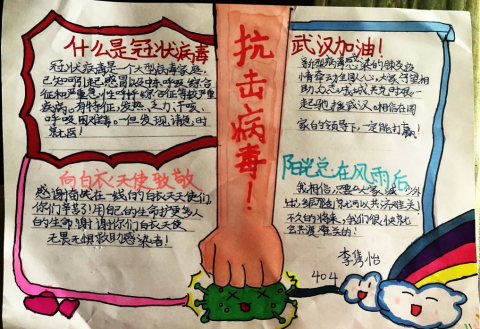 什么是冠状病毒
冠状病毒是一个大型病毒家庭,
已知可引起感冒以及中呼吸综合
征和严重急性呼吸综合征等较严重
疾病。有特征,发热、乏力、干咳、
呼吸困难等。一但发现,请速时
就医!
抗击病毒!
武汉加油!
新型病毒感染的肺炎疫
情牵动全国人心,大家守望相
助,众志成城共克时艰一
起驰援武汉。相信在国
家的领导下,一定能打赢!
向白衣天使致敬
感谢奋战在一线的白衣天天使们,
你们辛苦!用自己的生命护更多人
的生命,谢谢你们白衣天使
无畏无惧救助感染者!
阳光总在风雨后
我相信,只要大家减少外
出,
不久的将来,我们很快就
会共渡难关的!
李隽怡
404